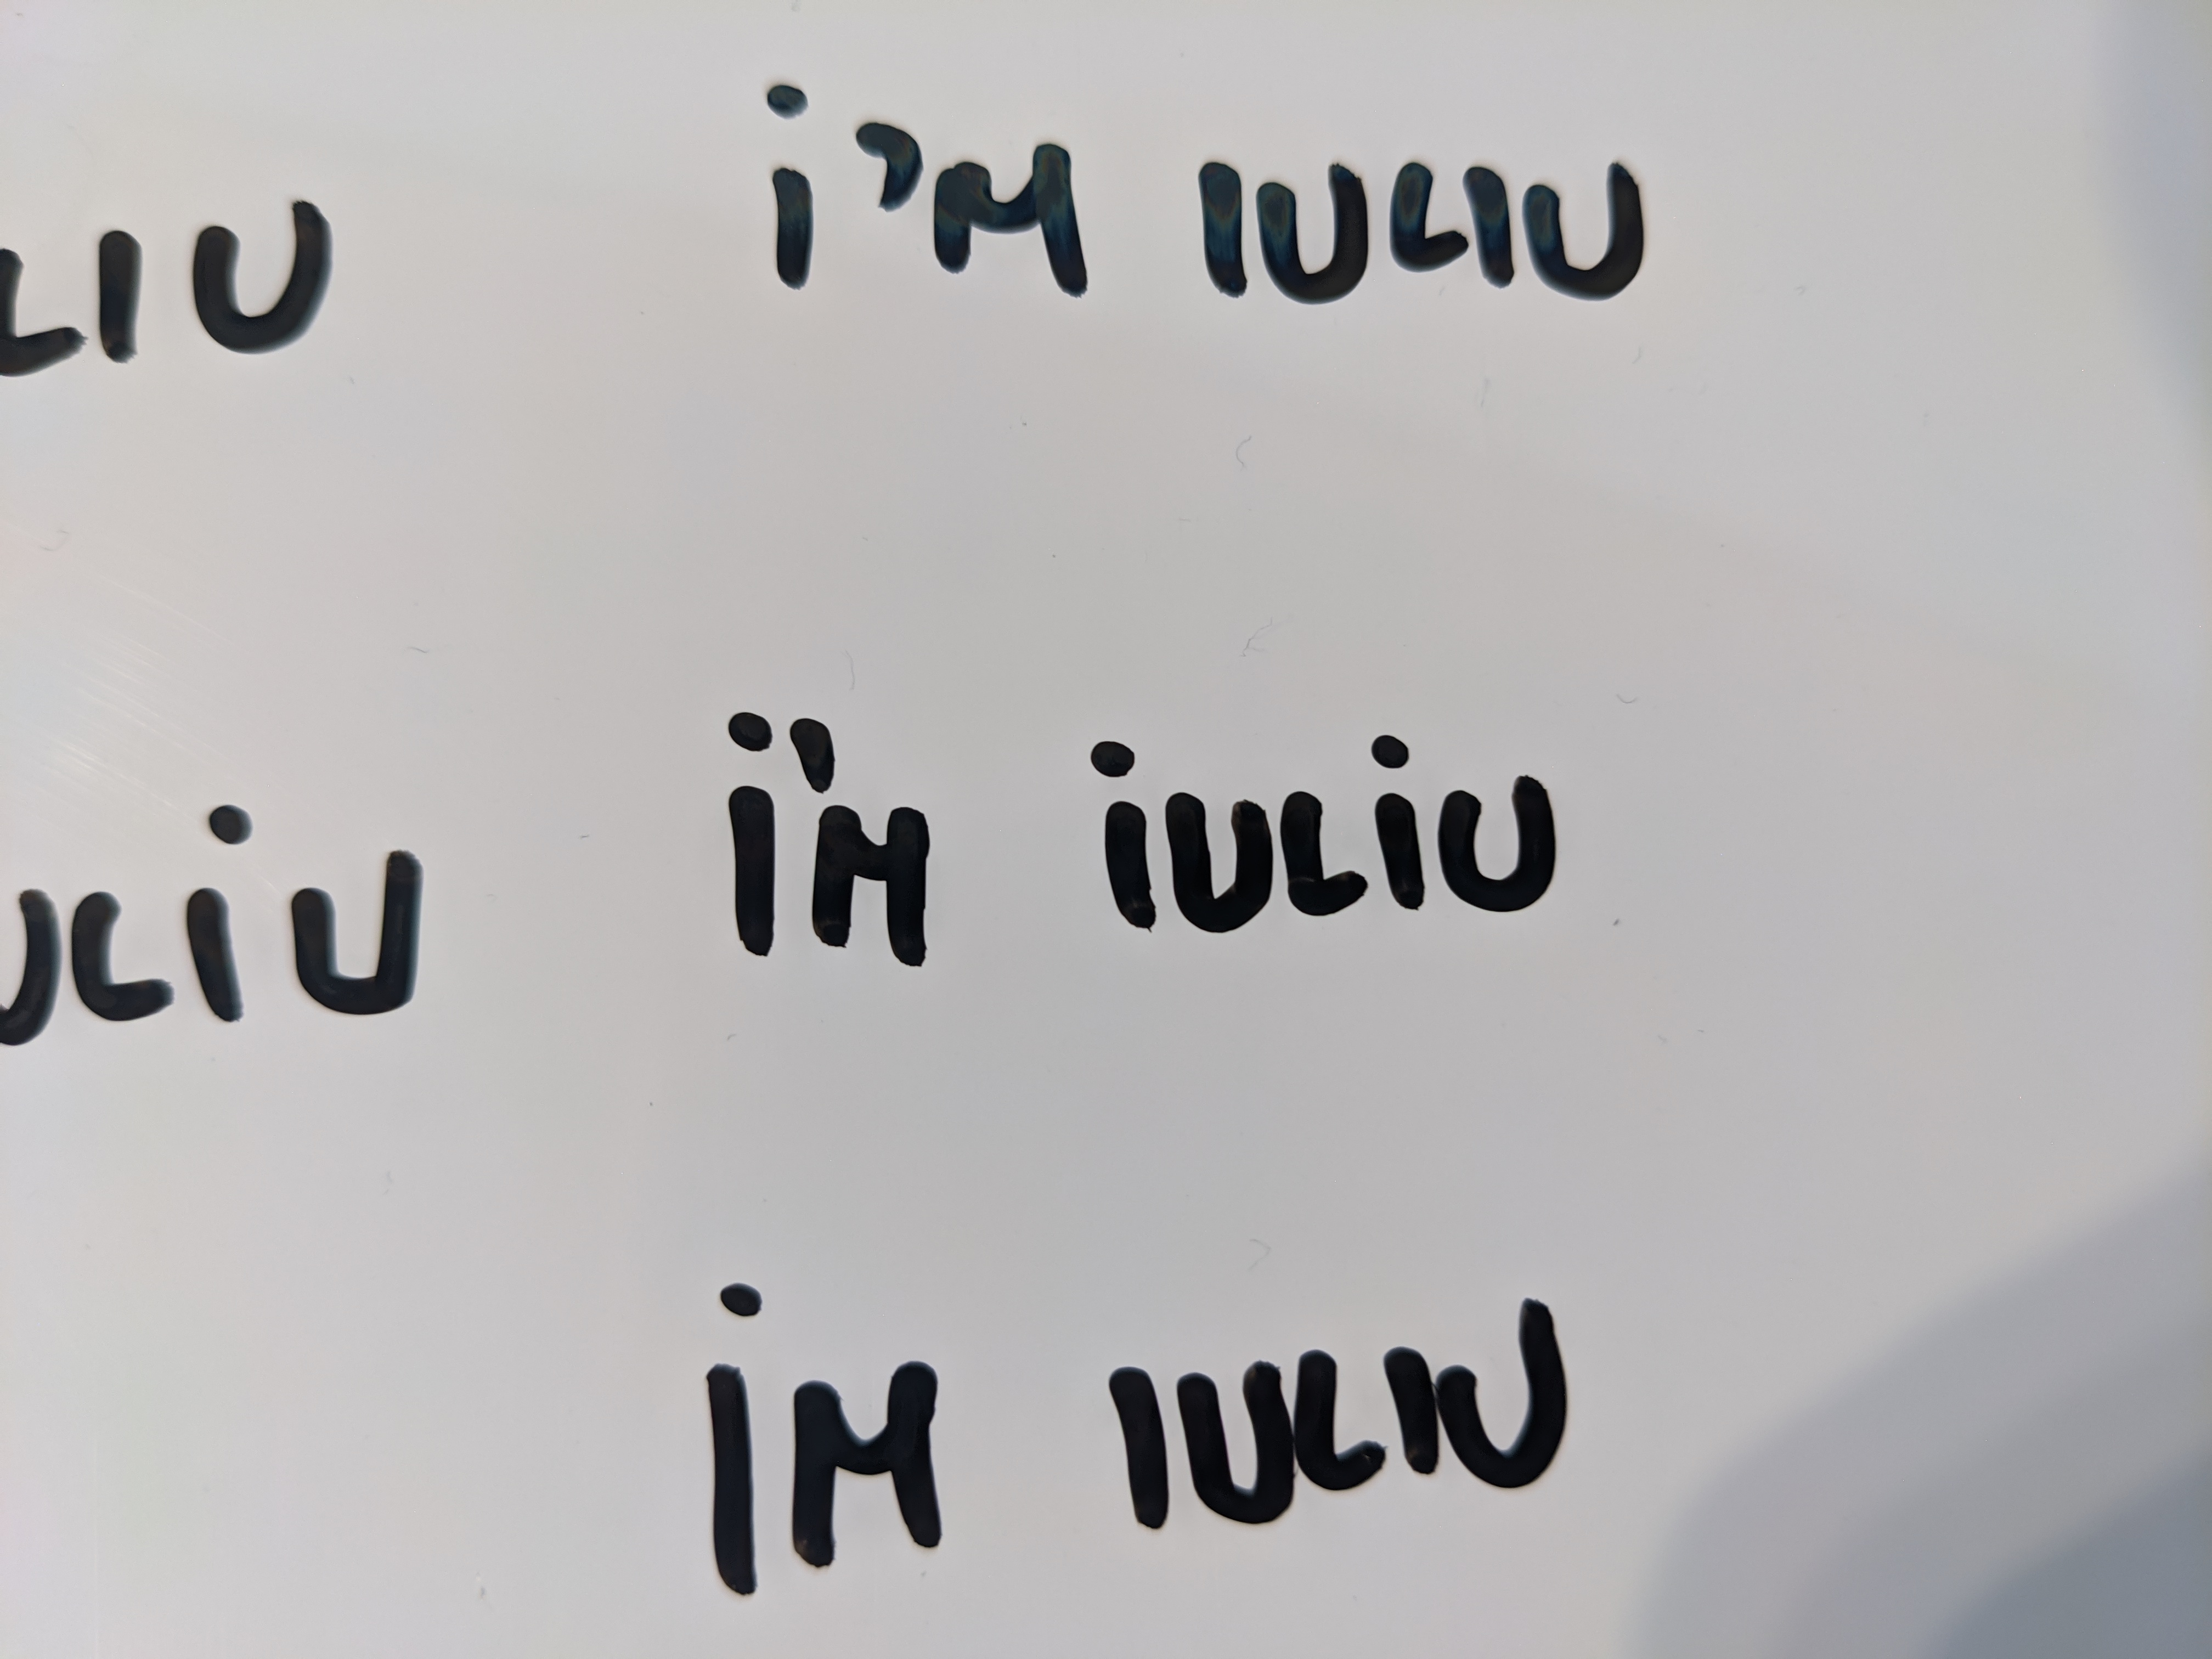 LIU i'M IULIU
ULiU i'M iULiU
iM IULIU